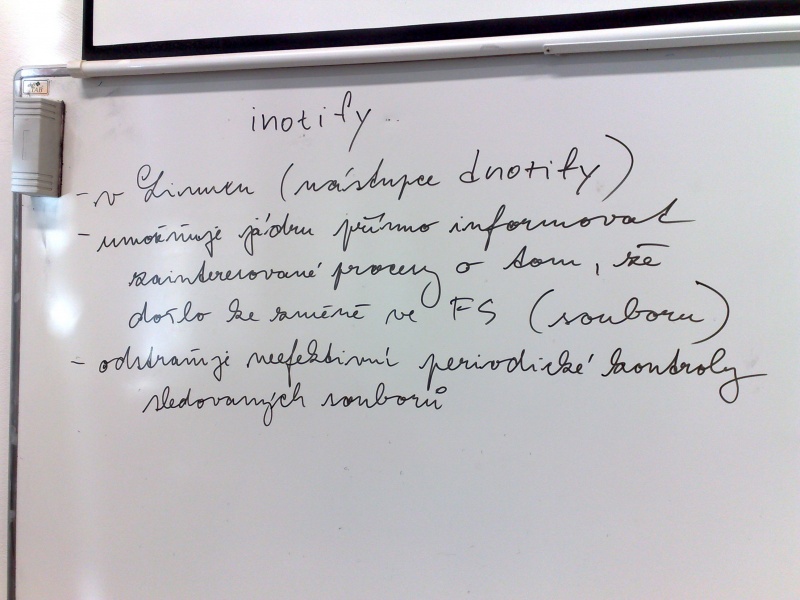 inotify
- v Linuxu (nástupce dnotify)
- umožňuje jádru přímo informovat
zainteresované procesy o tom, že
došlo ke změně ve FS (souboru)
- odstraňuje neefektivní periodické kontroly
sledovaných souborů